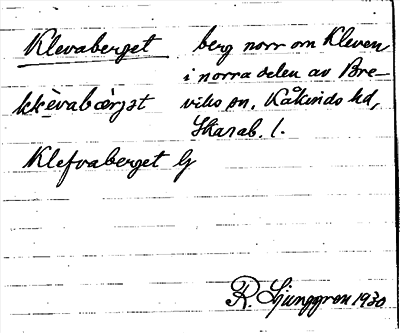 Klevaberget
berg norr om Kleven
i norra delen av Bre-
viks sn, Kåkinds hd,
Skarab. l.
klèvabærjət
Klefvaberget G
R. Ljunggren 1930